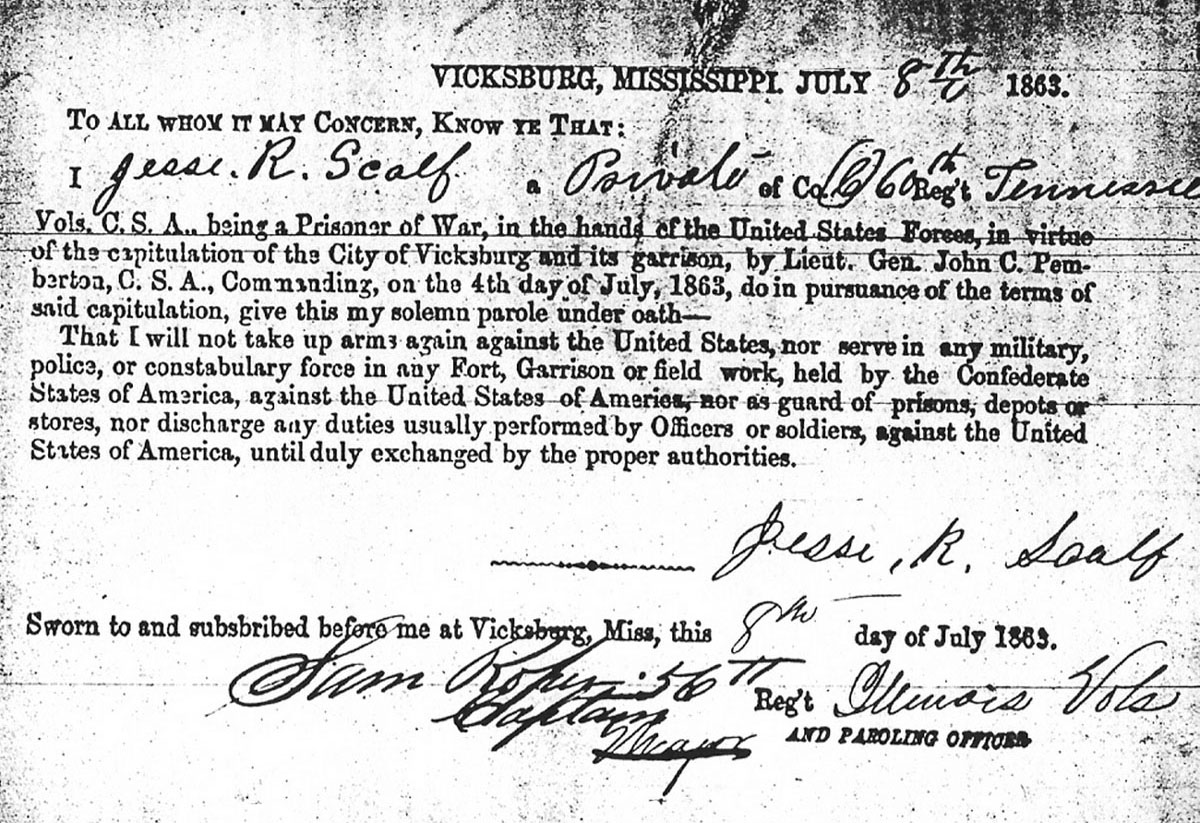 VICKSBURG, MISSISSIPPI. JULY 8th 1863.
TO ALL WHOM IT MAY CONCERN, KNOW YE THAT:
I Jesse. R. Scalf a Private of Co 60th Reg't Tennessee
Vols. C. S. A., being a Prisoner of War, in the hands of the United States Forces, in virtue
of the capitulation of the City of Vicksburg and its garrison, by Lieut. Gen. John C. Pem-
berton, C. S. A., Commanding, on the 4th day of July, 1863, do in pursuance of the terms of
said capitulation, give this my solemn parole under oath—
That I will not take up arms again against the United States, nor serve in any military,
police, or constabulary force in any Fort, Garrison or field work, held by the Confederate
States of America, against the United States of America, nor as guard of prisons, depots or
stores, nor discharge any duties usually performed by Officers or soldiers, against the United
States of America, until duly exchanged by the proper authorities.
Jesse, R. Scalf
Sworn to and subsbribed before me at Vicksburg, Miss, this 8th day of July 1863.
Sam Roper 56th Reg't Illinois Vols
Captain
Major
AND PAROLING OFFICER